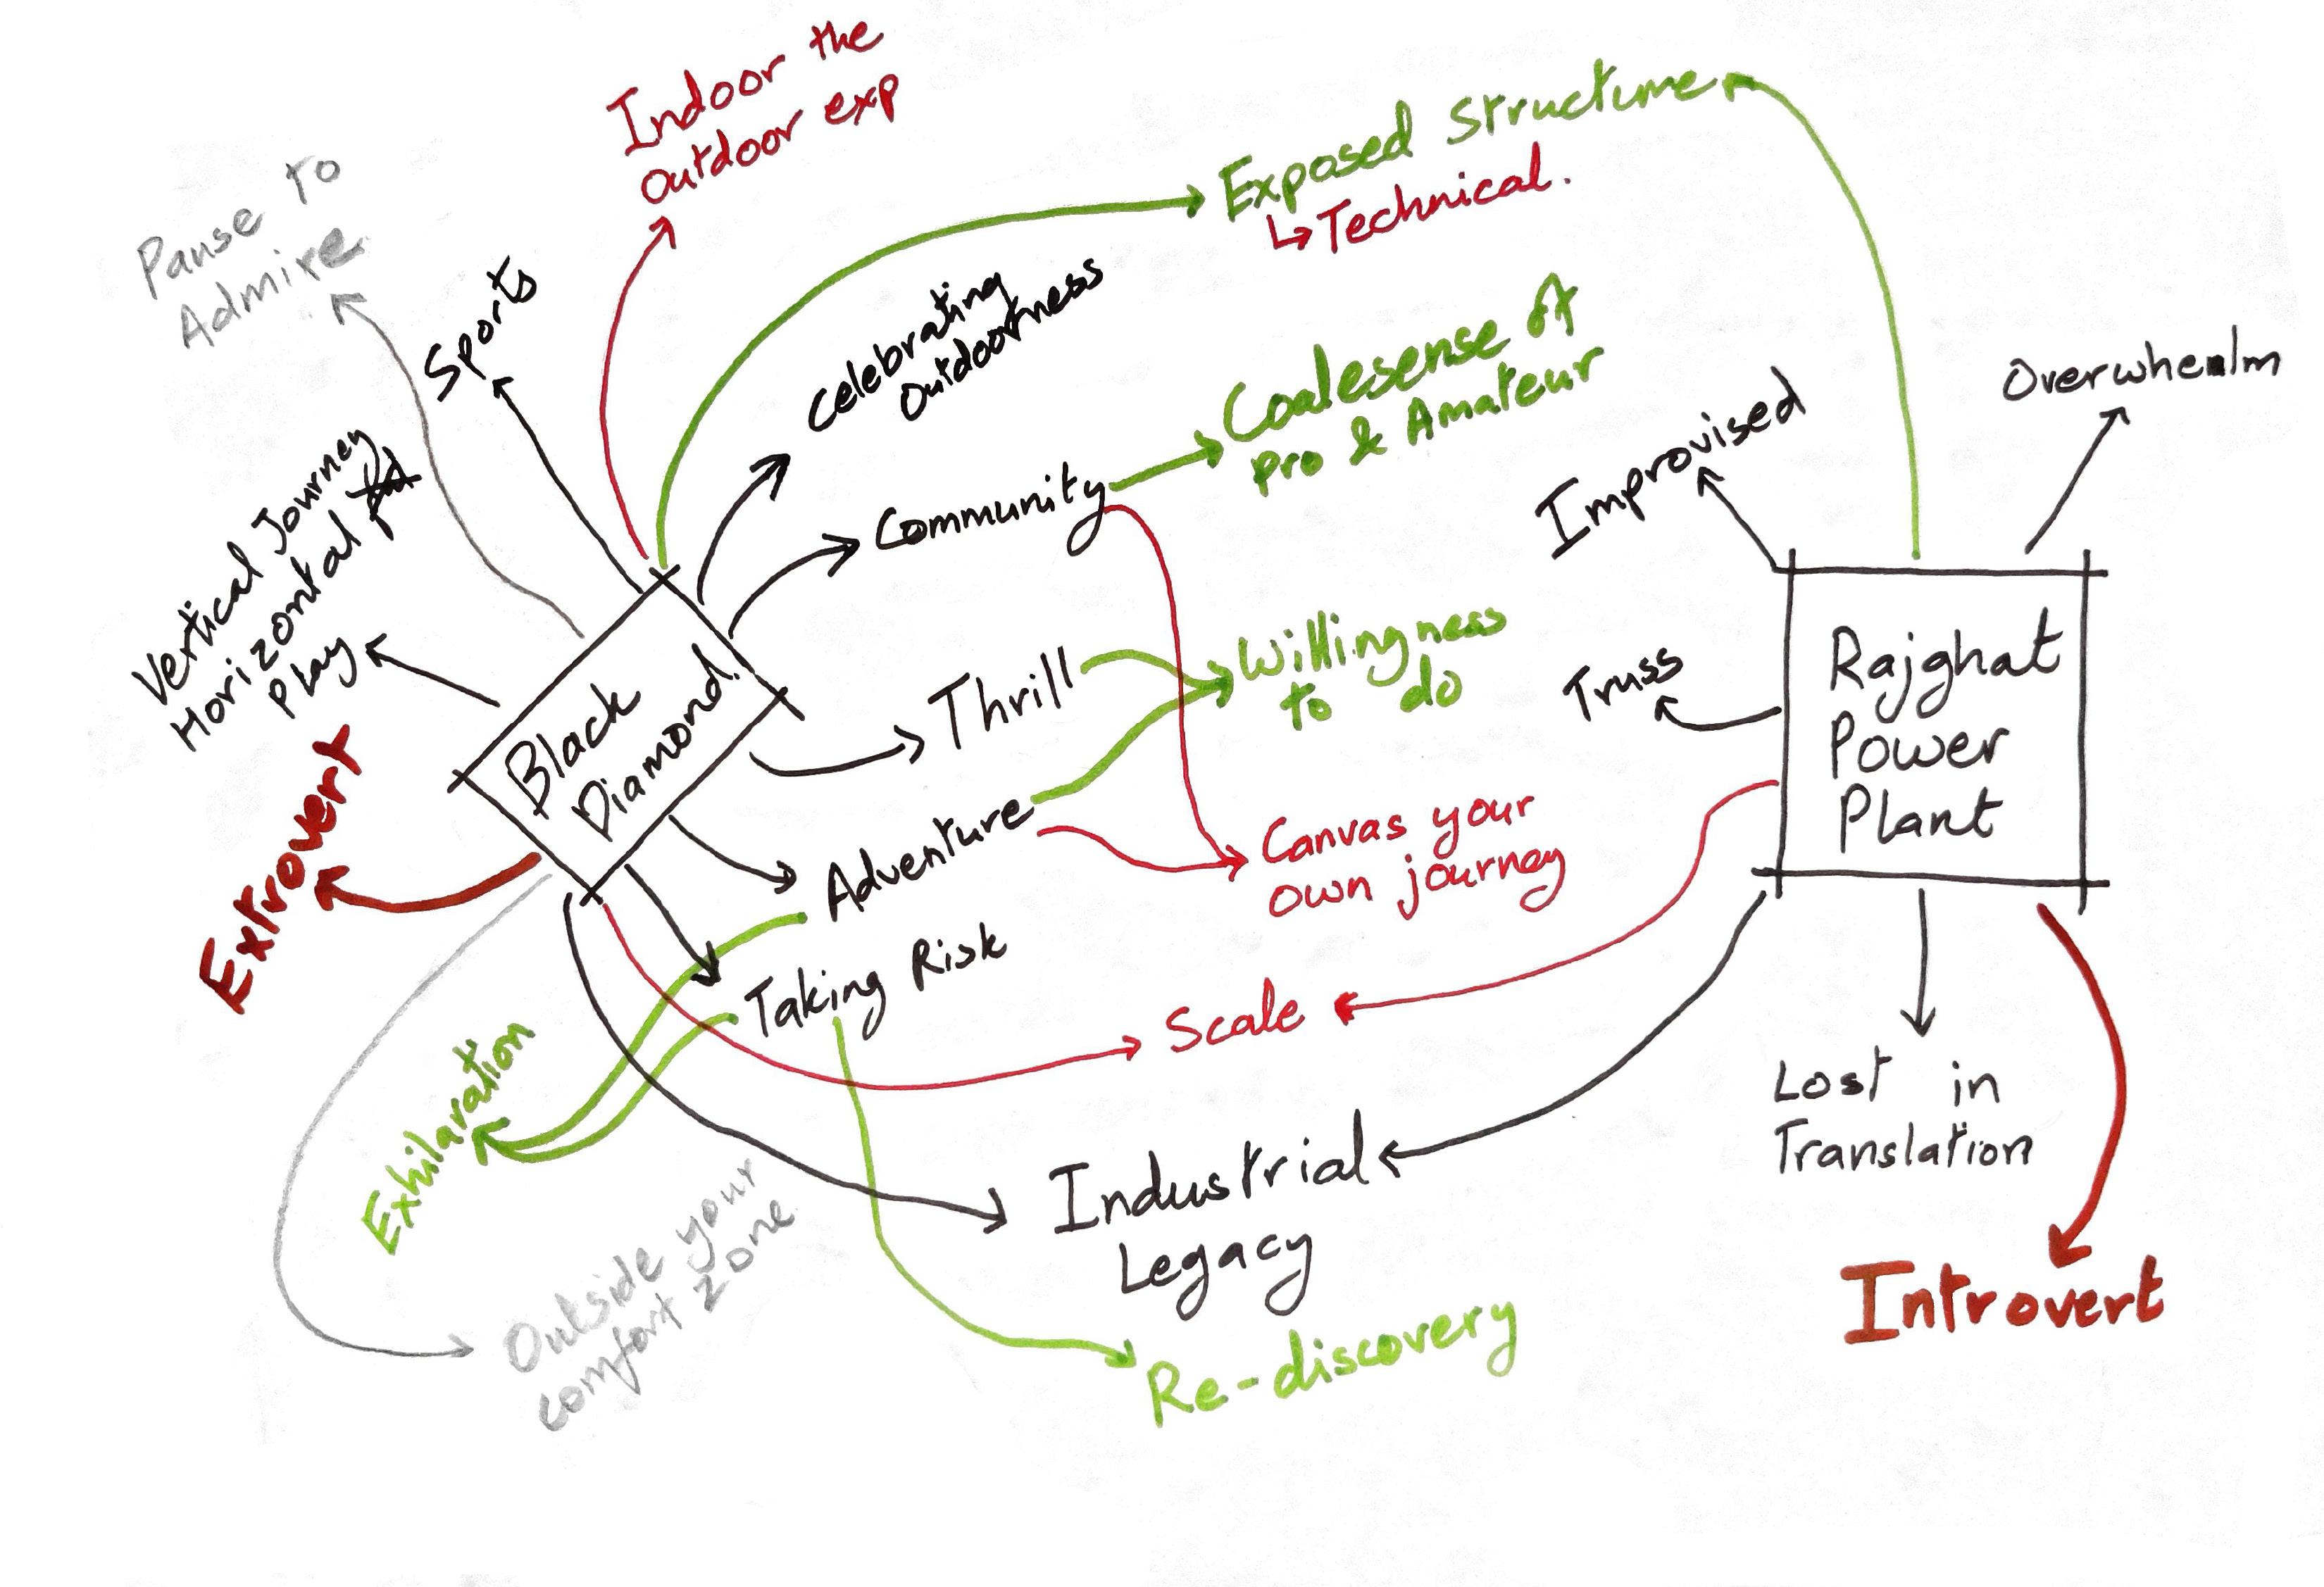 Indoor the
Outdoor exp
Exposed Structure
↳ Technical.
Pause to
Admire
Sports
Celebrating
Outdoorness
Coalesense of
pro & Amateur
Overwhealm
Improvised
Vertical Journey
Horizontal
Play
Community
Thrill
Willingness
to do
Truss
Rajghat
Power
Plant
Black
Diamond.
Extrovert
Adventure
Canvas your
own journey
Taking Risk
Scale
Exhilaration
Lost in
Translation
Industrial
Legacy
Outside your
comfort zone
Introvert
Re-discovery